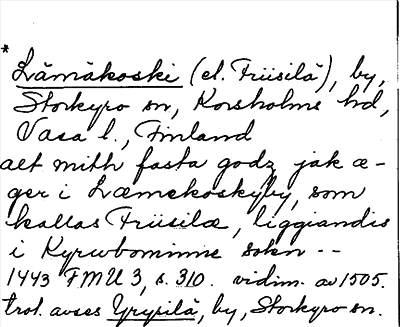 *
Lämäkoski (el. Friisilä), by,
Storkyro sn, Korsholms hd,
Vasa l., Finland
alt mith fasta godz jak æ-
ger i Læmekoskyby, som
kallas Friisilæ, liggiandis
i Kyrwbominne sokn --
1443 FMU 3, s. 310. vidim. av 1505.
trol. avses Yrysilä, by, Storkyro sn.